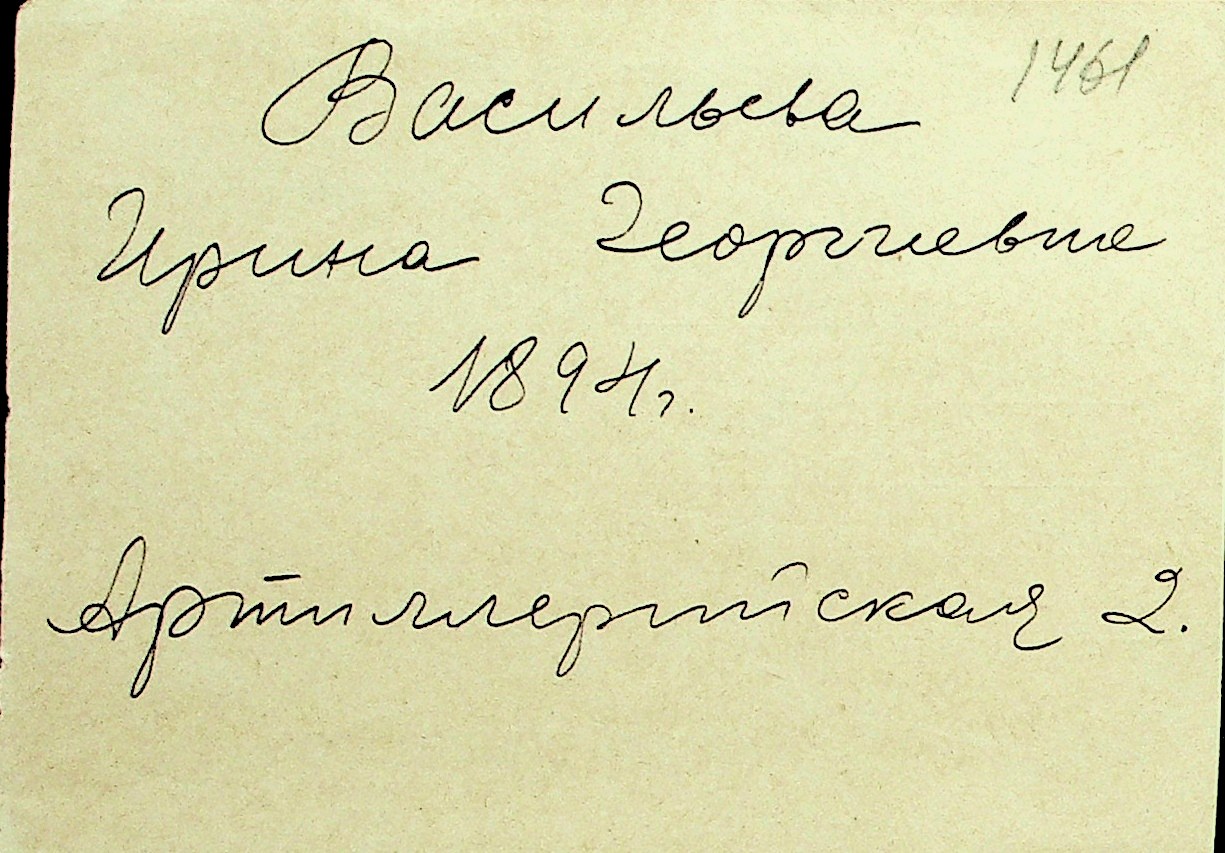 1461
Васильева
Ирина Георгиевна
1894г.
Артиллерийская 2.